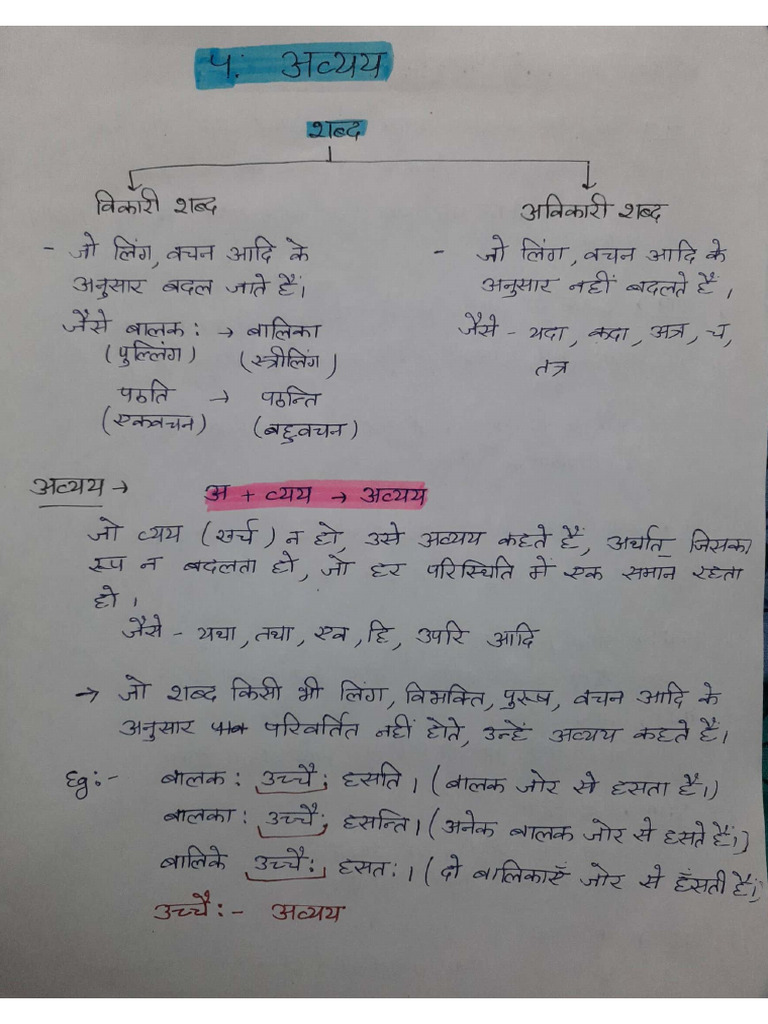 ५: अव्यय
शब्द
विकारी शब्द
- जो लिंग, वचन आदि के
अनुसार बदल जाते हैं।
जैसे बालक: → बालिका
(पुल्लिंग) (स्त्रीलिंग)
पठति → पठन्ति
(एकवचन) (बहुवचन)
अविकारी शब्द
- जो लिंग, वचन आदि के
अनुसार नहीं बदलते हैं।
जैसे - यदा, कदा, अत्र, च,
तत्र
अव्यय → अ + व्यय → अव्यय
जो व्यय (खर्च) न हो, उसे अव्यय कहते हैं, अर्थात् जिसका
रूप न बदलता हो, जो हर परिस्थिति में एक समान रहता
हो।
जैसे - यथा, तथा, एव, हि, उपरि आदि
→ जो शब्द किसी भी लिंग, विभक्ति, पुरूष, वचन आदि के
अनुसार परिवर्तित नहीं होते, उन्हें अव्यय कहते हैं।
Eg:- बालक: उच्चै: हसति। (बालक जोर से हसता है।)
बालका: उच्चै: हसन्ति। (अनेक बालक जोर से हसते हैं।)
बालिके उच्चै: हसत:। (दो बालिकाएँ जोर से हँसती हैं।
उच्चै:- अव्यय